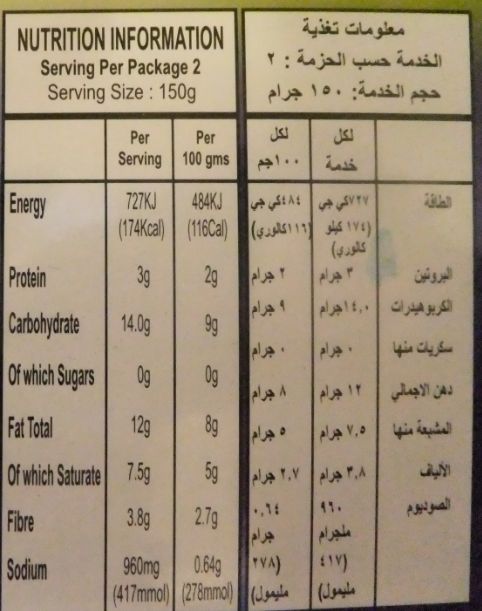 NUTRITION INFORMATION
Serving Per Package 2
Serving Size : 150g
Per Serving Per 100 gms
Energy 727KJ 484KJ
(174Kcal) (116Cal)
Protein 3g 2g
Carbohydrate 14.0g 9g
Of which Sugars 0g 0g
Fat Total 12g 8g
Of which Saturate 7.5g 5g
Fibre 3.8g 2.7g
Sodium 960mg 0.64g
(417mmol) (278mmol)
معلومات تغذية
الخدمة حسب الحزمة : ٢
حجم الخدمة: ١٥٠ جرام
لكل خدمة لكل ١٠٠جم
الطاقة ٧٢٧كي جي ٤٨٤كي جي
(١٧٤ كيلو كالوري) (١١٦كالوري)
البروتين ٣ جرام ٢ جرام
الكربوهيدرات ١٤,٠جرام ٩ جرام
سكريات منها ٠ جرام ٠ جرام
دهن الاجمالي ١٢ جرام ٨ جرام
المشبعة منها ٧,٥ جرام ٥ جرام
الألياف ٣,٨ جرام ٢,٧ جرام
الصوديوم ٩٦٠ ملجرام ٠,٦٤ جرام
(٤١٧ مليمول) (٢٧٨ مليمول)